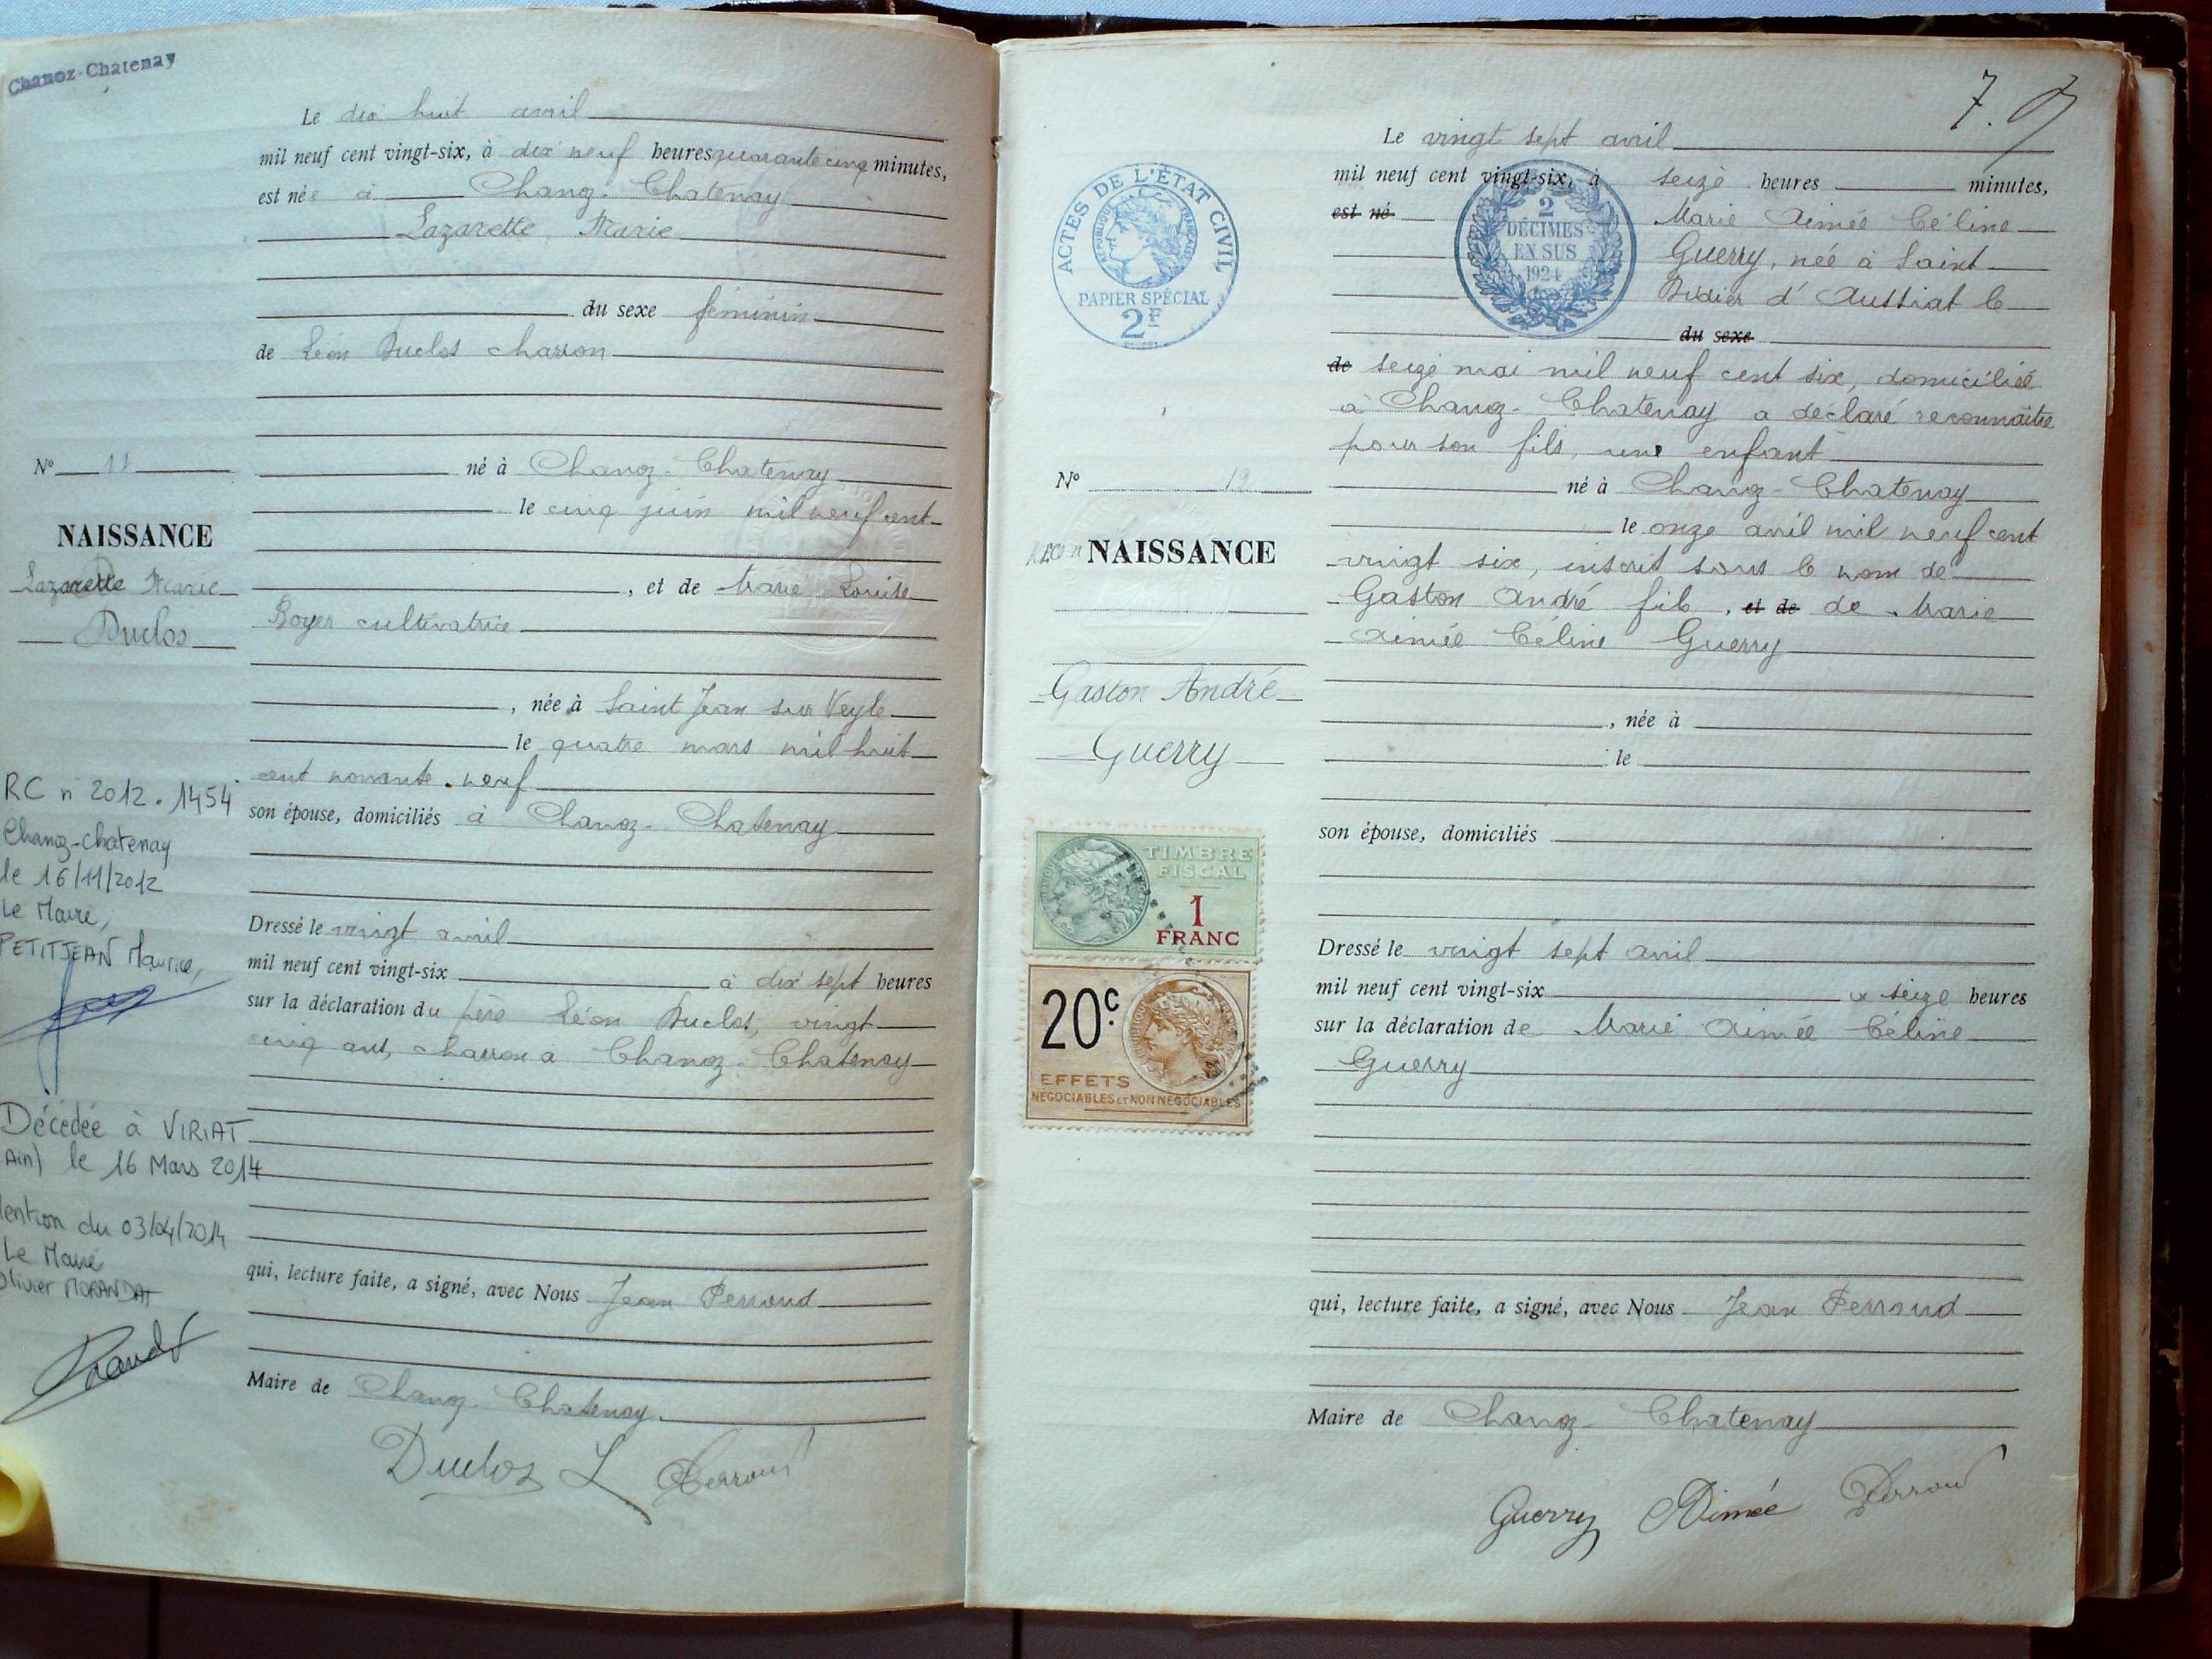 Chanoz-Chatenay
Le dix huit avril
mil neuf cent vingt-six, à dix neuf heures quarante cinq minutes,
est née à Chanoz-Chatenay
Lazarette Marie
du sexe féminin
de Léon Duclos charron
né à Chanoz-Chatenay
le cinq juin mil neuf cent
, et de Marie Louise
Royer cultivatrice
, née à Saint Jean sur Veyle
le quatre mars mil huit
cent nonante neuf
son épouse, domiciliés à Chanoz-Chatenay
Dressé le vingt avril
mil neuf cent vingt-six à dix sept heures
sur la déclaration du père Léon Duclos, vingt
cinq ans, charron a Chanoz-Chatenay
qui, lecture faite, a signé, avec Nous Jean Perroud
Maire de Chanoz-Chatenay.
Duclos L Perroud
N° 11
NAISSANCE
Lazarette Marie
Duclos
RC n 2012.1454
Chanoz-chatenay
le 16/11/2012
Le Maire,
PETITJEAN Maurice,
Décédée à VIRIAT
Ain) le 16 Mars 2014
ention du 03/04/2014
Le Maire
Olivier MORANDAT
7.
Le vingt sept avril
mil neuf cent vingt-six, à seize heures minutes,
est né Marie Aimée Céline
Guerry, née à Saint
Didier d'Aussiat le
du sexe
de seize mai mil neuf cent six, domiciliée
à Chanoz-Chatenay a déclaré reconnaître
pour son fils, une enfant
né à Chanoz-Chatenay
le onze avril mil neuf cent
vingt six, inscrit sous le nom de
Gaston André fils, et de de Marie
Aimée Céline Guerry
, née à
le
son épouse, domiciliés
Dressé le vingt sept avril
mil neuf cent vingt-six a seize heures
sur la déclaration de Marie Aimée Céline
Guerry
qui, lecture faite, a signé, avec Nous Jean Perroud
Maire de Chanoz-Chatenay
Guerry Aimée Perroud
ACTES DE L'ÉTAT CIVIL
RÉPUBLIQUE FRANÇAISE
PAPIER SPÉCIAL
2F
2
DÉCIMES
EN SUS
1924
N° 12
NAISSANCE
Gaston André
Guerry
TIMBRE
FISCAL
1
FRANC
20c.
EFFETS
NÉGOCIABLES ET NON NÉGOCIABLES